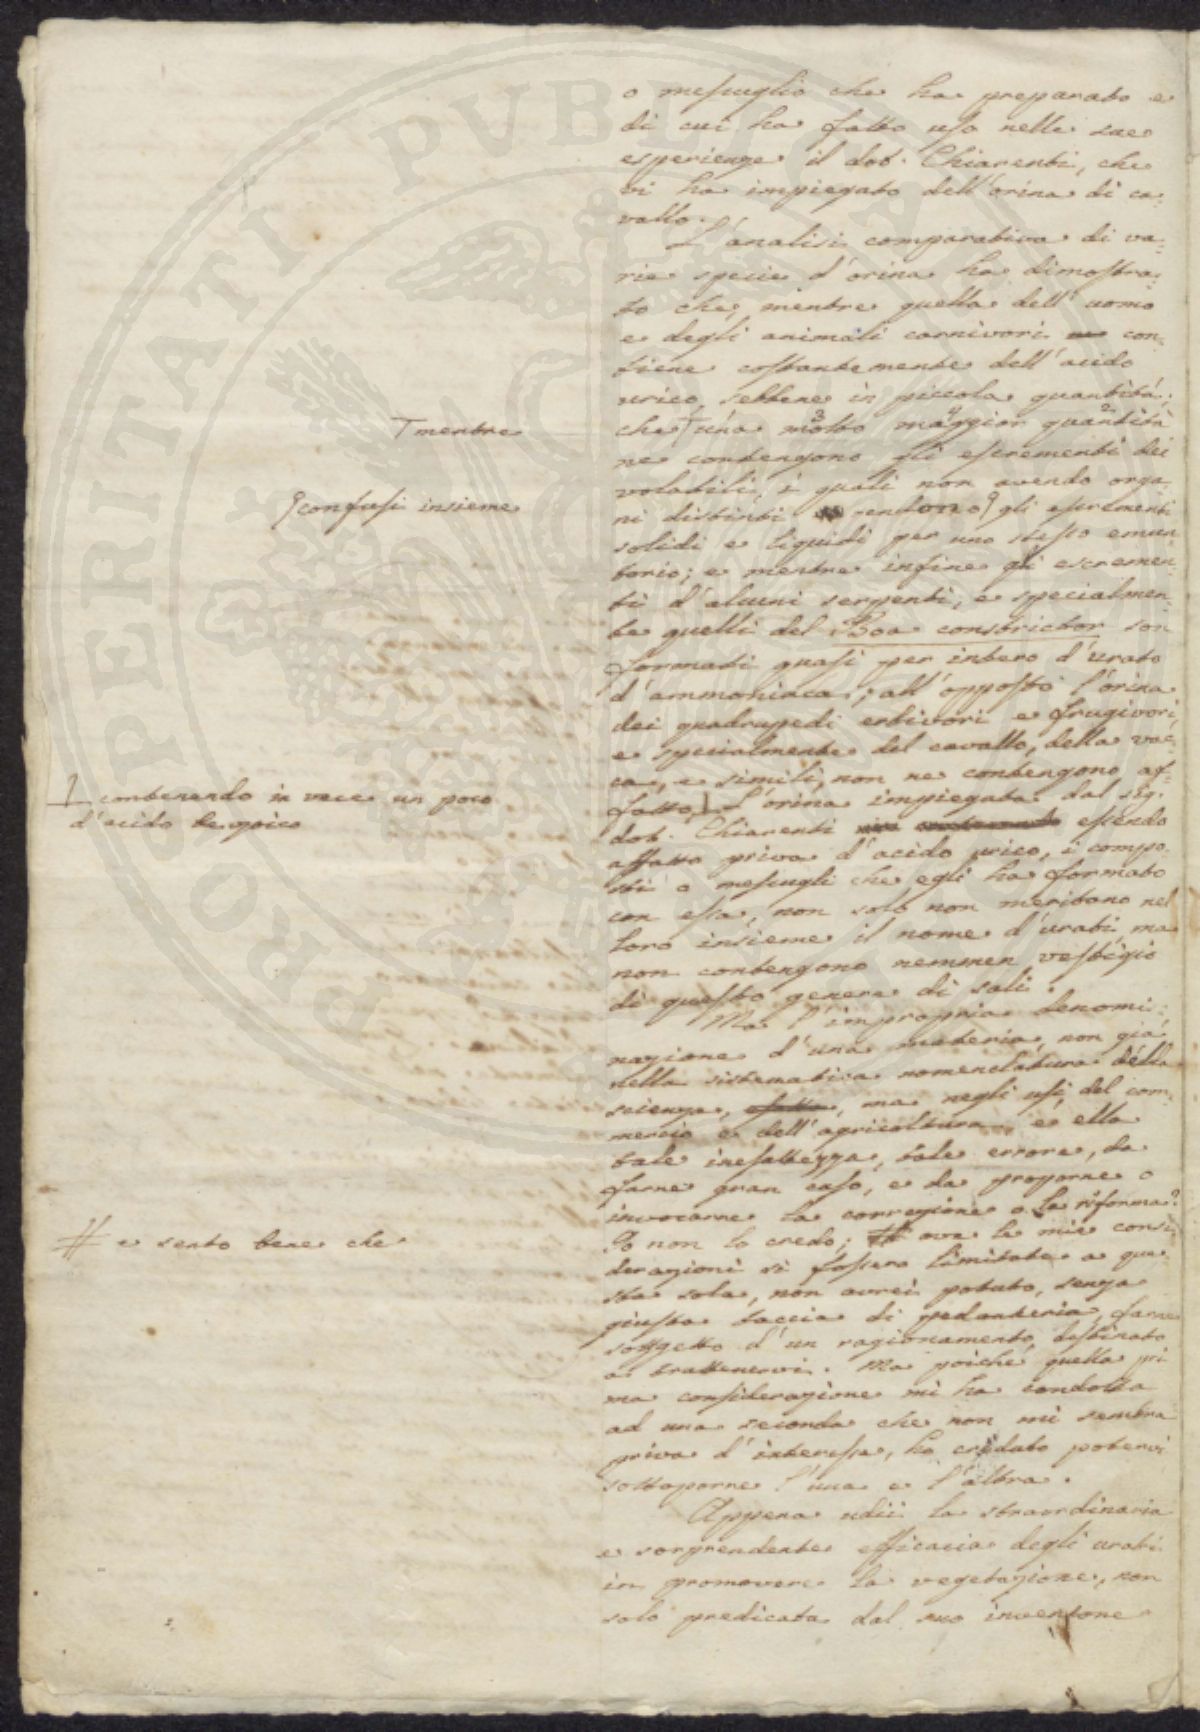 o mescuglio che ha preparato e
di cui ha fatto uso nelle sue
esperienze il dot. Chiarenti, che
vi ha impiegato dell'orina di ca-
vallo.
L'analisi comparativa di va-
rie specie d'orina ha dimostra-
to che, mentre quella dell'uomo
e degli animali carnivori con-
tiene costantemente dell'acido
urico, sebbene in piccola quantità;
T mentre
che T una 3 molto 4 maggior 2 quantità
ne contengono gli escrementi dei
volatili, i quali non avendo orga-
ni distinti rendono gli escrementi
confusi insieme
solidi e liquidi per uno stesso emun-
torio; e mentre infine gli escremen-
ti d'alcuni serpenti, e specialmen-
te quelli del Boa constrictor son
formati quasi per intero d'urato
d'ammoniaca; all'opposto l'orina
dei quadrupedi erbivori e frugivori,
e specialmente del cavallo, della vac-
ca, e simili, non ne contengono af-
fatto, L'orina impiegata dal sig.
contenendo in vece un poco
d'acido benzoico
dot. Chiarenti essendo
affatto priva d'acido urico, i compo-
sti o mescugli che egli ha formato
con essa, non solo non meritano nel
loro insieme il nome d'urati, ma
non contengono nemmen vestigio
di questo genere di sali.
Ma l'impropria denomi-
nazione d'una materia, non già
nella sistematica nomenclatura della
scienza, ma negli usi del com-
mercio e dell'agricoltura, è ella
tale inesattezza, tale errore, da
farne gran caso, e da proporne o
invocarne la correzione o la riforma?
Io non lo credo; # ove le mie consi-
# e sento bene che
derazioni si fossero limitate a que-
sta sola, non avrei potuto, senza
giusta taccia di pedanteria, farne
soggetto d'un ragionamento destinato
a trattenervi. Ma poichè quella pri-
ma considerazione mi ha condotto
ad una seconda che non mi sembra
priva d'interesse, ho creduto potervi
sottoporre l'una e l'altra.
Appena udii la straordinaria
e sorprendente efficacia degli urati
in promovere la vegetazione, non
solo predicata dal suo inventore
PRO PERITATI PVBLICAE